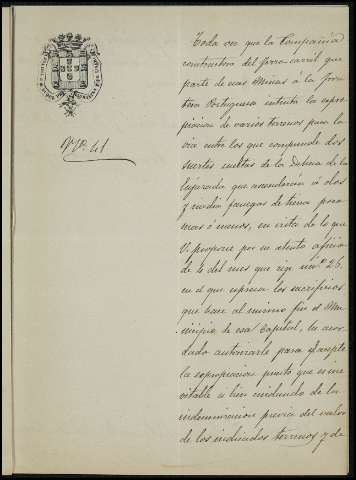 Nº 41
Toda vez que la Compañia
constructora del ferro-carril que
parte de esas Minas á la fron-
tera Portuguesa intenta la espro-
piacion de varios terrenos para la
via entre los que comprende dos
suertes cultas de la Dehesa de la
que ascenderán á dos
y media fanegas de tierra poco
mas ó menos, en vista de lo que
V. propone por su atento oficio
de 4 del mes que rige num.º 25,
en el que espresa los sacrificios
que hace al mismo fin el Mu-
nicipio de esa Capital, he acor-
dado autorizarle para q. acepte
la espropiacion puesto que es ine-
vitable si bien cuidando de la
indemnizacion previa del valor
de los indicados terrenos y de